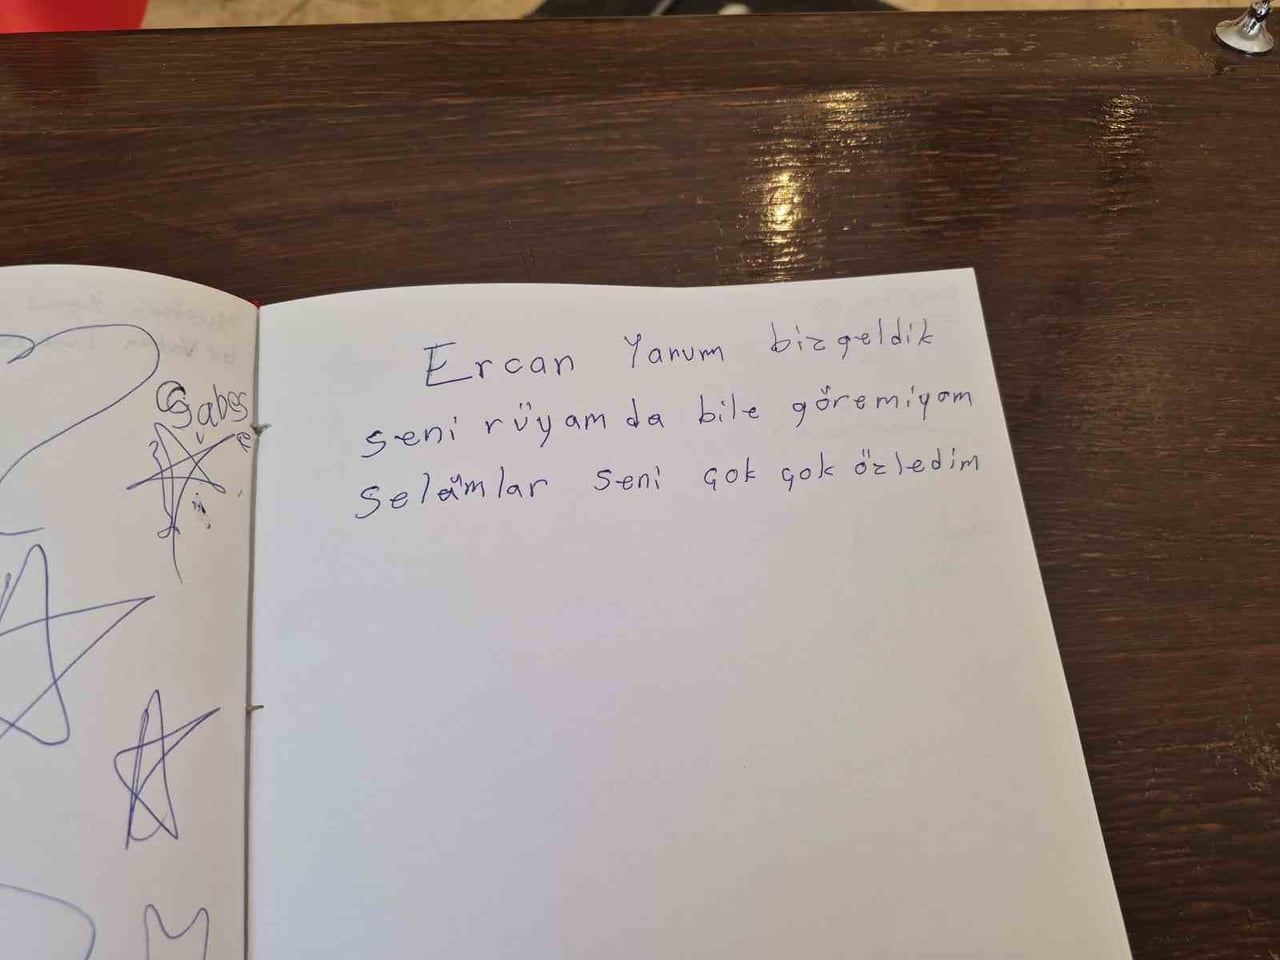 Ercan Yanum bizgeldik
seni rüyamda bile göremiyom
Selamlar seni çok çok özledim